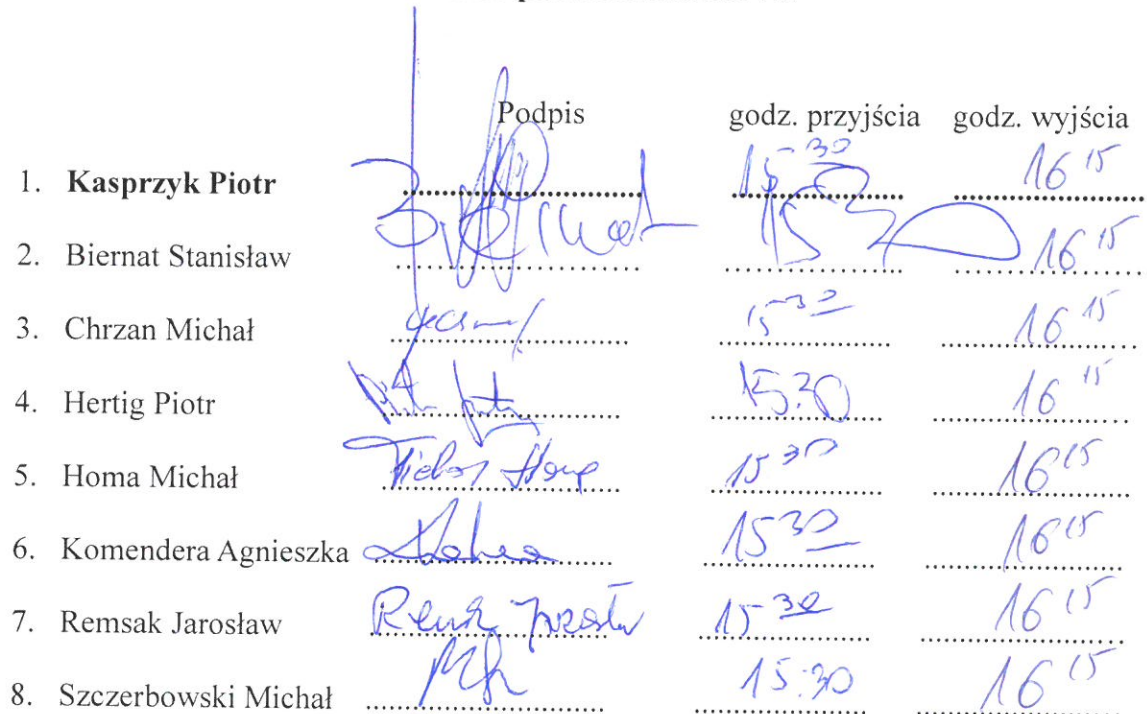 Podpis godz. przyjścia godz. wyjścia
1. Kasprzyk Piotr 15 30 16 15
2. Biernat Stanisław 15 30 16 15
3. Chrzan Michał 15 30 16 15
4. Hertig Piotr 15:30 16 15
5. Homa Michał 15 30 16 15
6. Komendera Agnieszka 15 30 16 15
7. Remsak Jarosław 15 30 16 15
8. Szczerbowski Michał 15:30 16 15